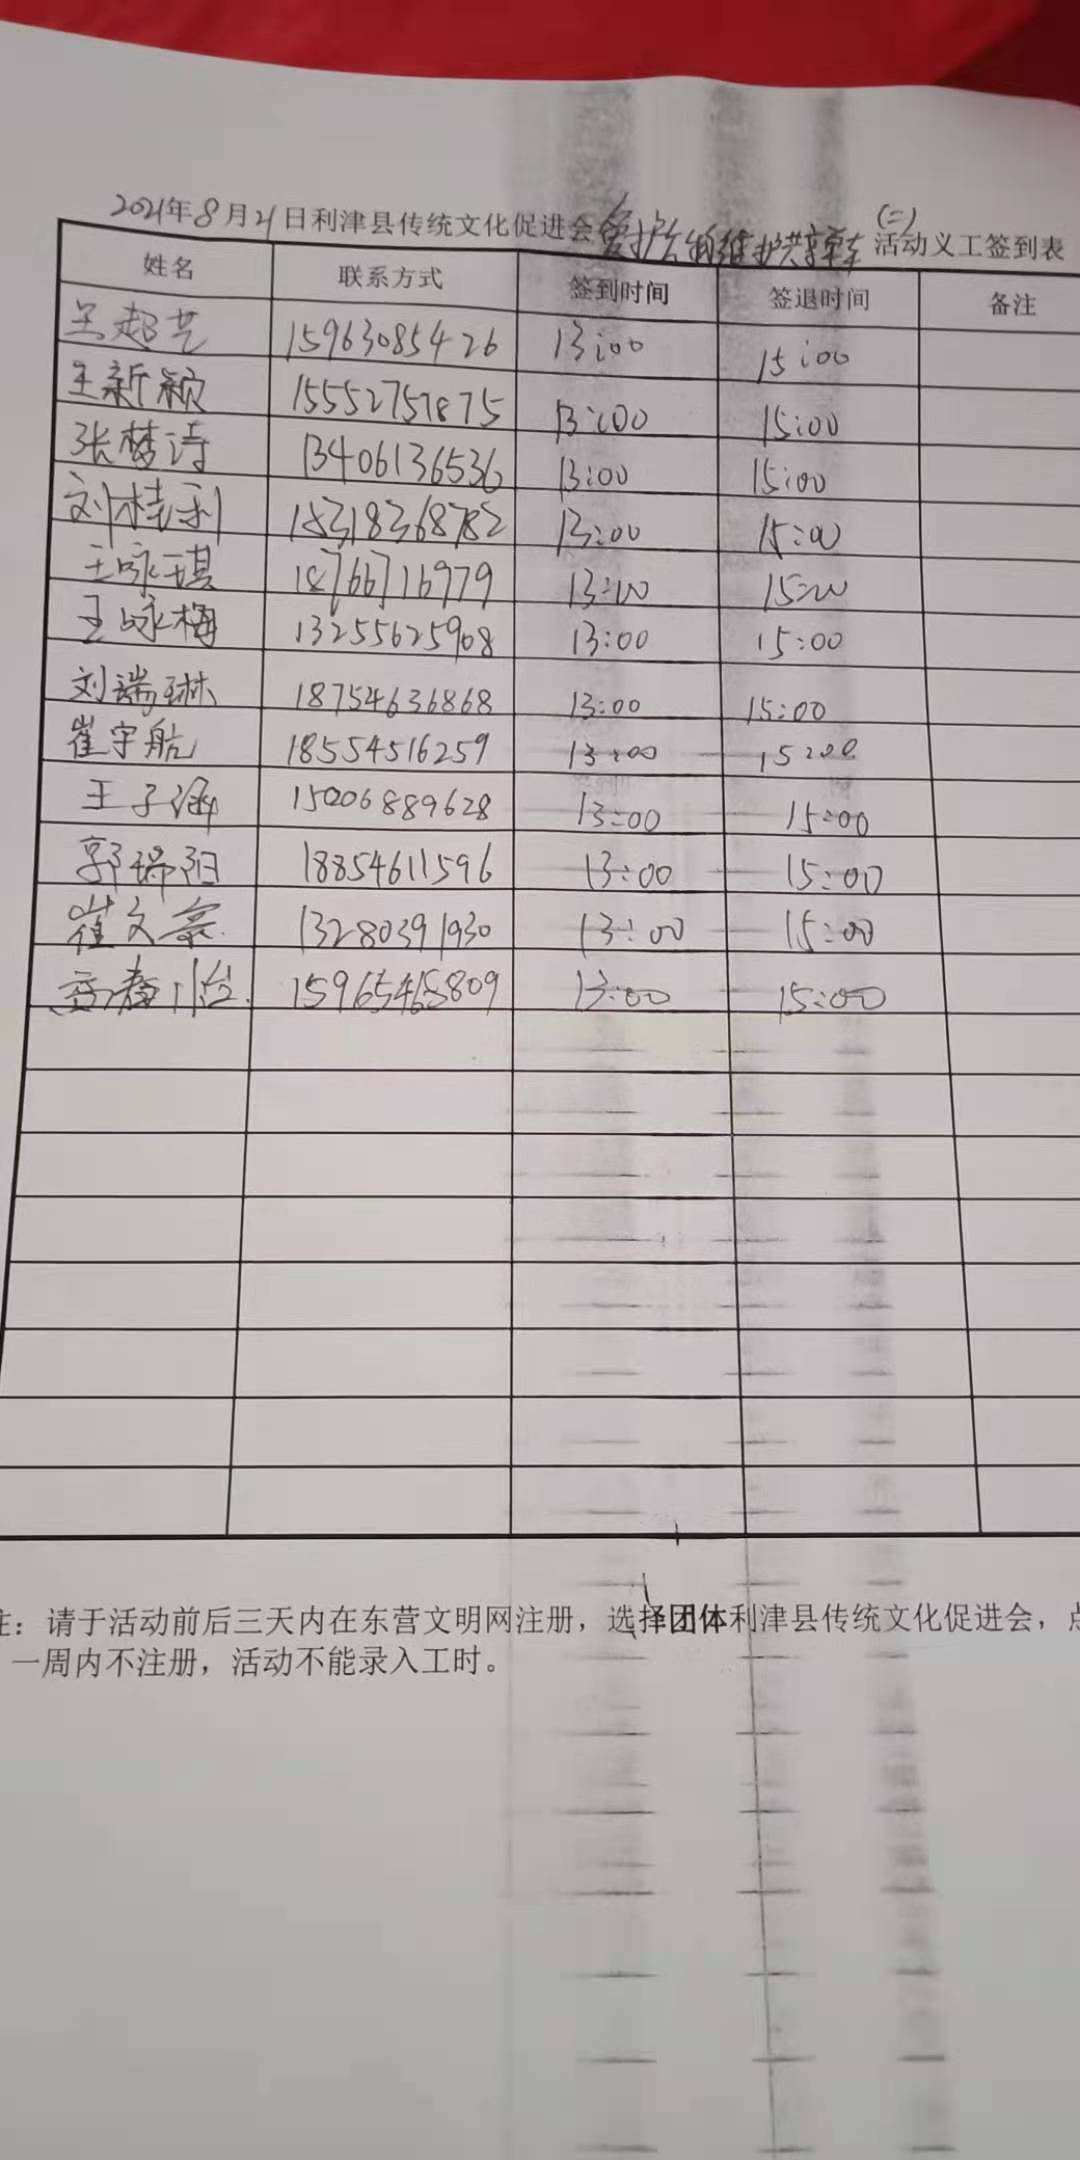 2021年8月21日利津县传统文化促进会 维护共享单车(二)活动义工签到表
姓名 联系方式 签到时间 签退时间 备注
王超艺 15963085426 13:00 15:00
王新颖 15552757875 13:00 15:00
张梦诗 13406136536 13:00 15:00
刘桂利 18318368782 13:00 15:00
王咏琪 18766716979 13:00 15:00
王咏梅 13255625908 13:00 15:00
刘瑞琳 18754636868 13:00 15:00
崔宇航 18554516259 13:00 15:00
王子涵 15006889628 13:00 15:00
郭瑞阳 18854611596 13:00 15:00
崔文豪 13280391930 13:00 15:00
15965468809 13:00 15:00
注：请于活动前后三天内在东营文明网注册，选择团体利津县传统文化促进会，点
一周内不注册，活动不能录入工时。